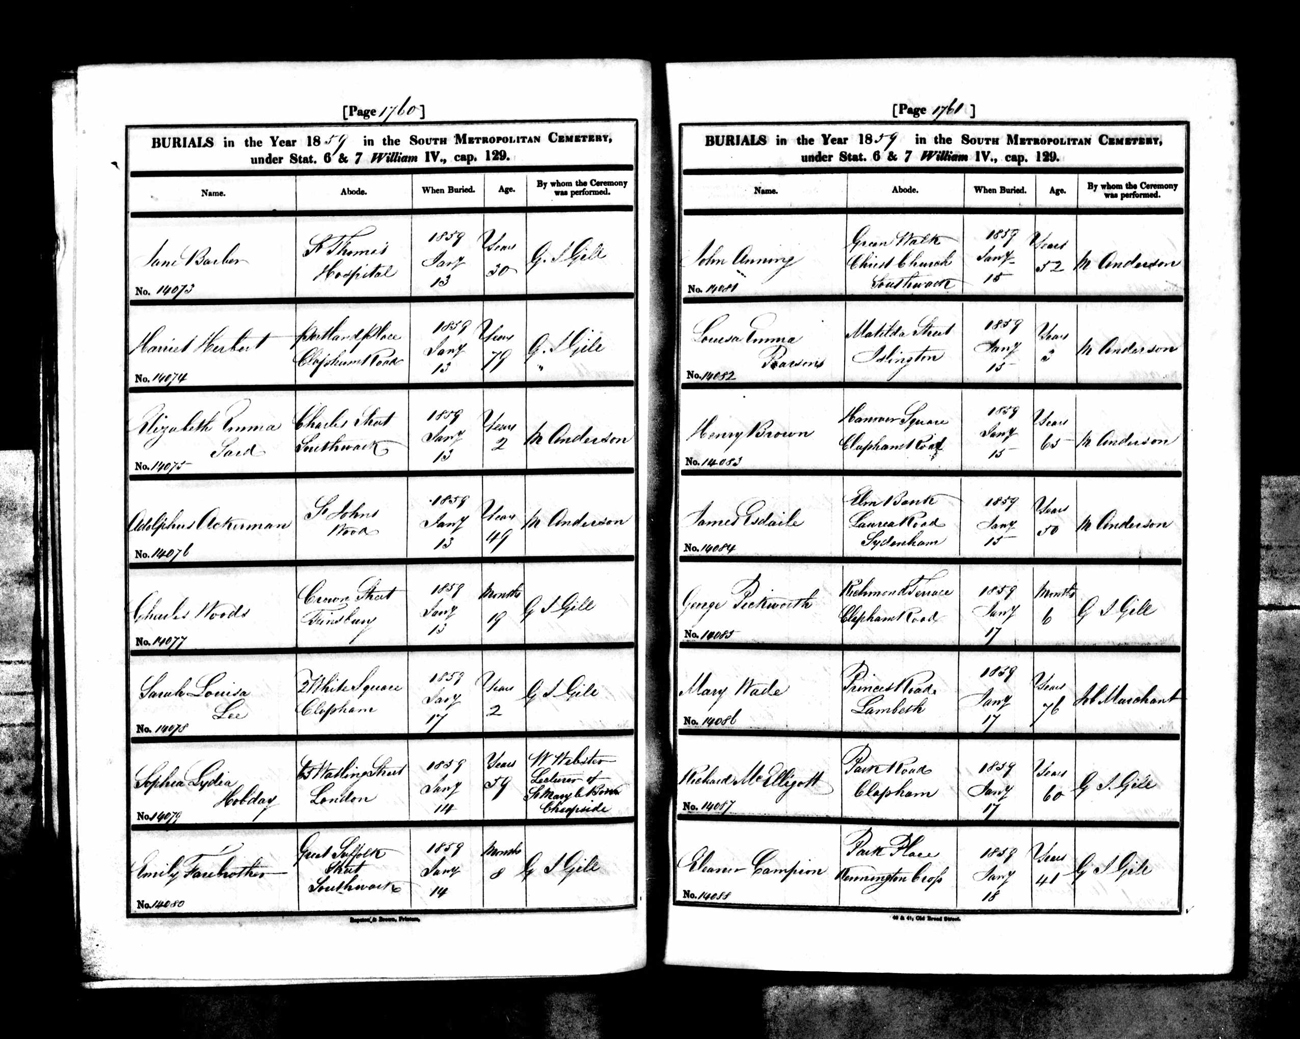 [Page 1760]
BURIALS in the Year 1859 in the SOUTH METROPOLITAN CEMETERY,
under Stat. 6 & 7 William IV., cap. 129.
Name. Abode. When Buried. Age. By whom the Ceremony
was performed.
Jane Barber St Thomas's Hospital 1859 Jany 13 Years 30 G. S Gill
No. 14073
Harriet Herbert Portland Place Clapham Road 1859 Jany 13 Years 79 G. S Gill
No. 14074
Elizabeth Emma Charles Street Southwark 1859 Jany 13 Years 2 M Anderson
No. 14075
Adolphus Ackerman St Johns Wood 1859 Jany 13 Years 49 M Anderson
No. 14076
Charles Woods Crown Street Finsbury 1859 Jany 13 Months 19 G S Gill
No. 14077
Sarah Louisa Lee 2 White Square Clapham 1859 Jany 17 Years 2 G S Gill
No. 14078
Sophia Lydia Hobday Watling Street London 1859 Jany 14 Years 59 W Webster Lecturer of St Mary le Bow Cheapside
No. 14079
Emily Farebrother Great Suffolk Street Southwark 1859 Jany 14 Months 8 G S Gill
No. 14080
Boynton & Brown, Printers,
[Page 1761]
BURIALS in the Year 1859 in the SOUTH METROPOLITAN CEMETERY,
under Stat. 6 & 7 William IV., cap. 129.
Name. Abode. When Buried. Age. By whom the Ceremony
was performed.
John Anning Green Walk Christ Church Southwark 1859 Jany 15 Years 52 M Anderson
No. 14081
Louisa Emma Pearsons Matilda Street Islington 1859 Jany 15 Years 2 M Anderson
No. 14082
Henry Brown Hanover Square Clapham Road 1859 Jany 15 Years 65 M Anderson
No. 14083
James Esdaile Elm Bank Road Sydenham 1859 Jany 15 Years 50 M Anderson
No. 14084
George Pickworth Richmond Terrace Clapham Road 1859 Jany 17 Months 6 G S Gill
No. 14085
Mary Wade Princes Road Lambeth 1859 Jany 17 Years 76 Marchant
No. 14086
Richard McElligott Park Road Clapham 1859 Jany 17 Years 60 G S. Gill
No. 14087
Eleanor Campion Park Place Kennington Cross 1859 Jany 18 Years 41 G S Gill
No. 14088
Old Broad Street.